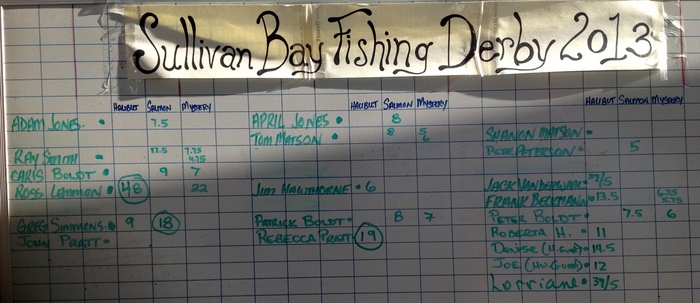 Sullivan Bay Fishing Derby 2013
HALIBUT SALMON MYSTERY
ADAM JONES • 7.5
RAY SMITH • 17.5 7.75
4.75
CARIS BOLDT • 9 7
ROSS LEMMON • 48 22
GREG SIMMONS • 9 18
JOHN PRATT •
HALIBUT SALMON MYSTERY
APRIL JONES • 8
TOM MATSON • 8 5
6
JIM HAWTHORNE • 6
PATRICK BOLDT • 8 7
REBECCA PRATT 19
HALIBUT SALMON MYSTERY
SHANON MATSON •
PETE PETERSON • 5
JACK VANDERWARK • 37/5
FRANK BECKMANN • 13.5 6.25
5.75
PETER BOLDT • 7.5 6
ROBERTA H. • 11
Denise • 14.5
JOE • 12
Lorriane • 39/5